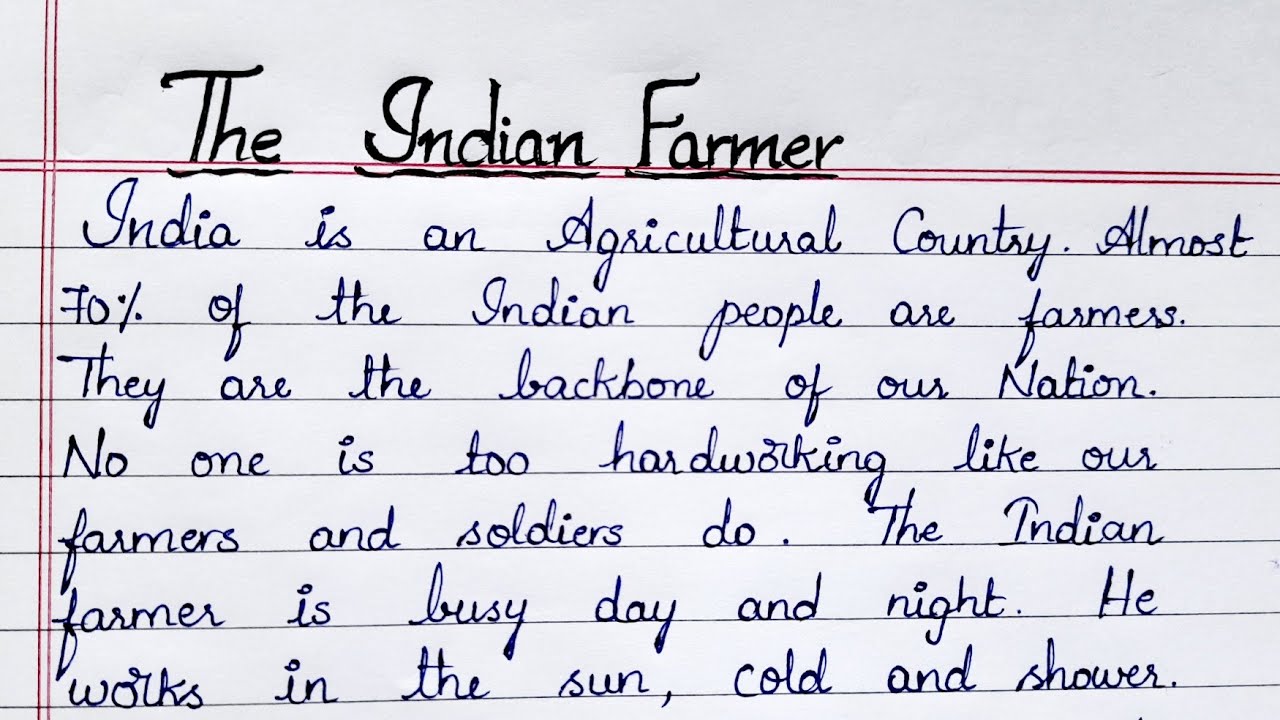 The Indian Farmer
India is an Agricultural Country. Almost
70% of the Indian people are farmers.
They are the backbone of our Nation.
No one is too hardworking like our
farmers and soldiers do. The Indian
farmer is busy day and night. He
works in the sun, cold and shower.